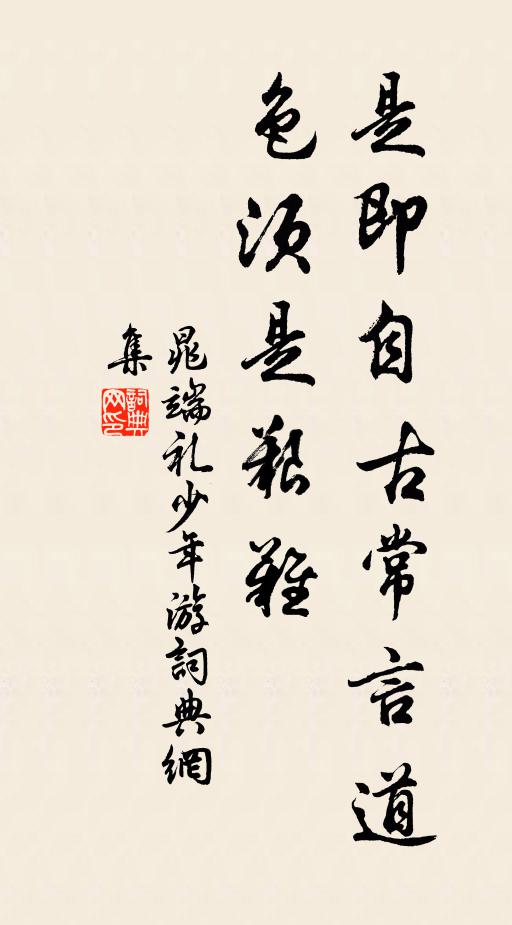 是即自古常言道
色须是艱難
晁端礼少年游詞典網
集
詞典网印